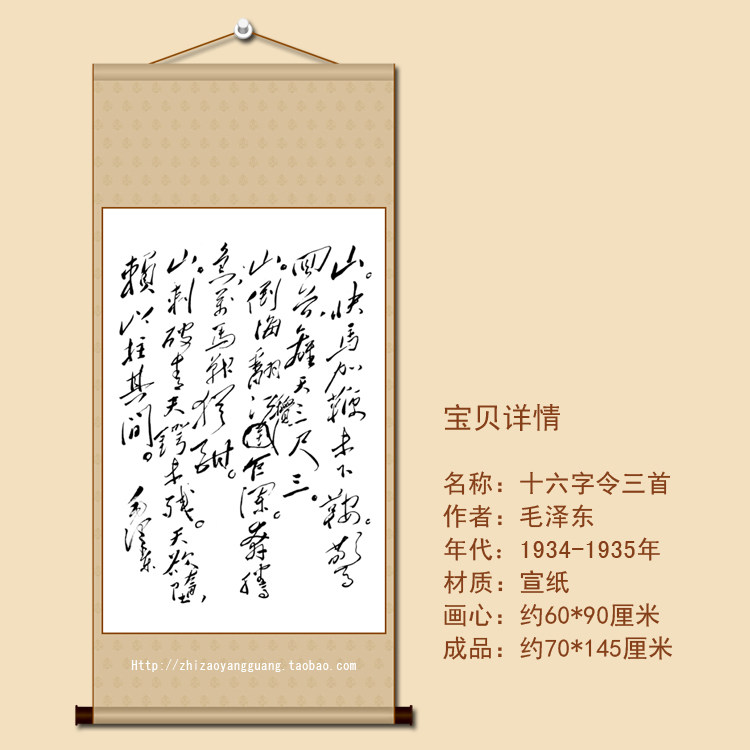 山。快馬加鞭未下鞍。驚
回首,離天三尺三。
山。倒海翻江巨瀾。奔騰
急,萬馬戰猶酣。
山。刺破青天鍔未殘。天欲墮,
賴以拄其間。
毛澤東
Http://zhizaoyangguang.taobao.com
宝贝详情
名称：十六字令三首
作者：毛泽东
年代：1934-1935年
材质：宣纸
画心：约60*90厘米
成品：约70*145厘米